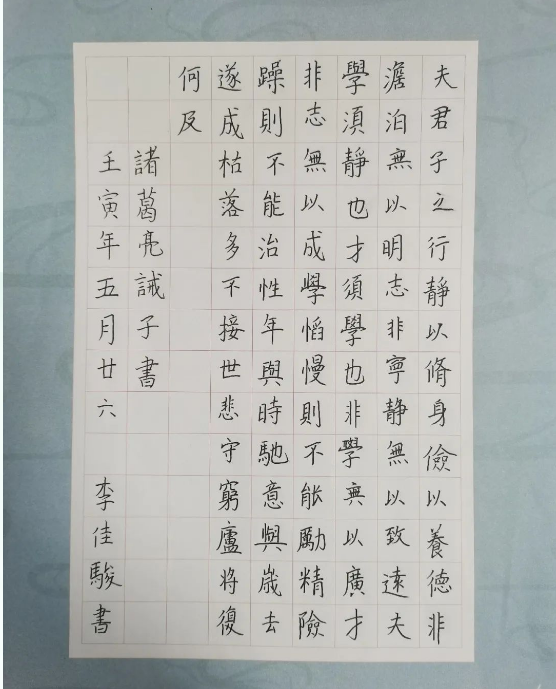 夫君子之行靜以脩身儉以養德非
澹泊無以明志非寧靜無以致遠夫
學須靜也才須學也非學無以廣才
非志無以成學慆慢則不能勵精險
躁則不能治性年與時馳意與歲去
遂成枯落多不接世悲守窮廬將復
何及
諸葛亮誡子書
壬寅年五月廿六 李佳駿書